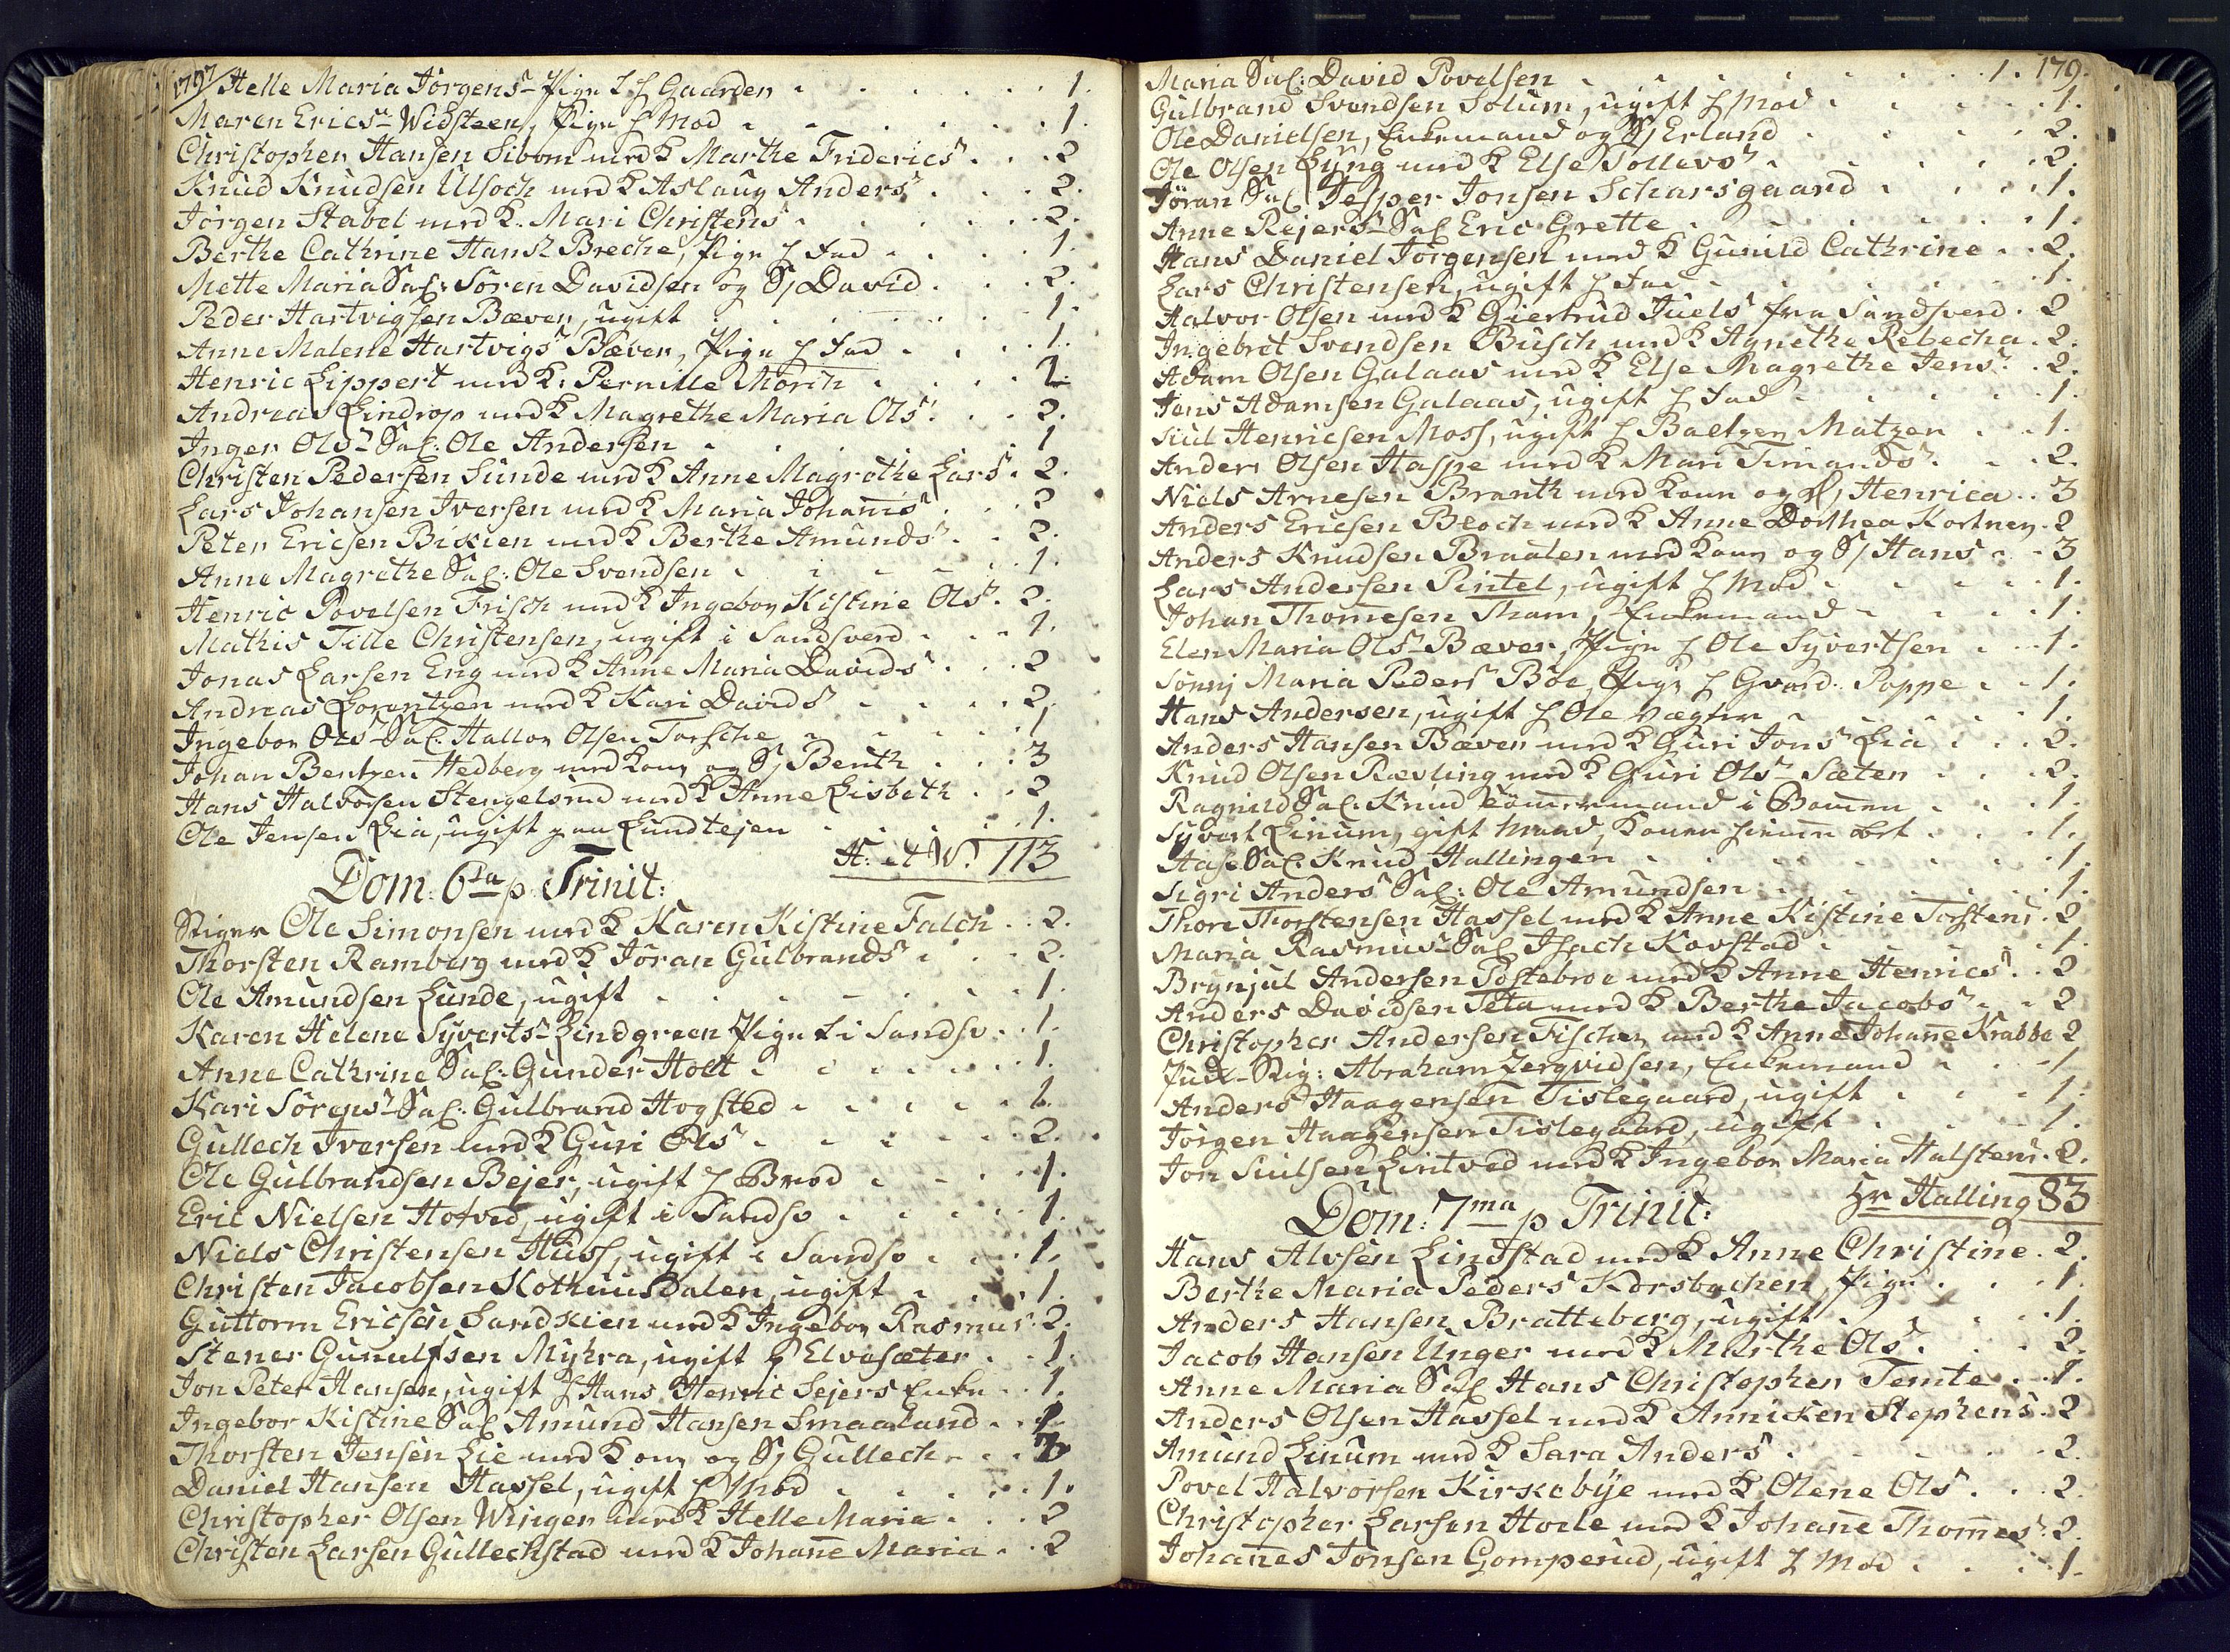 1797 Helle Maria Jörgensr Pige Gaarden 1.
Maren Ericsr Widsteen, Pige h Mod 1.
Christopher Hansen Sibom med K Marthe Fridericsr 2
Knud Knudsen Ulsoch med K Aslaug Andersr 2.
Jörgen Stabel med K. Mari Christens 2.
Berthe Cathrine Hansr Breche, Pige h Fad 1.
Mette Maria Sal: Sören Davidsen og S David 2.
Peder Hartvigsen Bæver, ugift 1.
Anne Malene Hartvigsr Bæver, Pige h Fad 1.
Henric Lippert med K: Pernille Morch 2.
Andreas Lindrop med K Magrethe Maria Olsr 2.
Inger Olsr Sal: Ole Andersen 1
Christen Pedersen Sunde med K Anne Magrethe Larsr 2.
Lars Johansen Iversen med K Maria Johannis 2
Peter Ericsen Bixien med K Berthe Amundsr 2.
Anne Magrethe Sal: Ole Svendsen 1.
Henric Povelsen Frisch med K Ingebor Kistine Olsr 2.
Mathis Tille Christensen, ugift i Sandsverd 1.
Jonas Larsen Eng med K Anne Maria Davidsr 2
Andreas Lorentzen med K Kari Davidsr 2.
Ingebor Olsr Sal: Hallor Olsen Torsche 1
Johan Bentzen Hedberg med Kone og S Benth 3
Hans Halvorsen Stengelsrud med K Anne Lisbeth 2
Ole Jensen Lia, ugift paa Lundtejen 1.
H: et W. 113
Dom: 6ta p Trinit:
Stiger Ole Simonsen med K Karen Kistine Falch 2.
Thorsten Ramberg med K Jöran Gulbrandsr 2.
Ole Amundsen Lunde, ugift 1.
Karen Helene Syvertsr Lindgreen Pige i Sandsv 1.
Anne Cathrine Sal: Gunder Holt 1.
Kari Sörensr Sal: Gulbrand Hogsted 1.
Gullech Iversen med K Guri Olsr 2.
Ole Gulbrandsen Bejer, ugift h Brod 1.
Eric Nielsen Hotved, ugift i Sandsv 1.
Niels Christensen Huss, ugift i Sandsv 1.
Christen Jacobsen Kothuusdalen, ugift 1.
Guttorm Ericsen Sandkien med K Ingebor Rasmus 2.
Stener Gunulfsen Myhra, ugift p Elvesæter 1.
Jon Peter Hansen, ugift h Hans Henric Sejers Enke 1.
Ingebor Kistine Sal Amund Hansen Smaaland 1
Thorsten Jensen Lie med Kone og S Gullech 3
Daniel Hansen Hassel, ugift h Mod 1.
Christopher Olsen Winger med K Helle Maria 2
Christen Larsen Gullechstad med K Johanne Maria 2
179.
Maria Sal: David Povelsen 1.
Gulbrand Svendsen Solum, ugift h Mod 1.
Ole Danielsen, Enkemand og S Erland 2.
Ole Olsen Lyng med K Else Tollevsr 2.
Jöran Sal Jesper Jonsen Scharsgaard 1.
Anne Rejersr Sal Eric Grette 1.
Hans Daniel Jörgensen med K Gunild Cathrine 2.
Lars Christensen, ugift h Fad 1.
Halvor Olsen med K Giertrud Juelsr fra Sandsverd 2
Ingebret Svendsen Busch med K Agnethe Rebecha 2.
Adam Olsen Galaas med K Else Magrethe Jensr 2.
Jens Adamsen Galaas, ugift h Fad 1.
Siul Henricsen Moss, ugift h Baltzer Matzen 1.
Anders Olsen Haspe med K Mari Simandsr 2.
Niels Arnesen Branth med Kone og D Henrica 3
Anders Ericsen Bloch med K Anne Dorthea Kortney 2
Anders Knudsen Braaten med Kone og S Hans 3
Lars Andersen Pintel, ugift h Mod 1.
Johan Thomesen Skam, Enkemand 1.
Elen Maria Olsr Bæver, Pige h Ole Syvertsen 1.
Sönnj Maria Pedersr Böe, Pige h Gvard. Poppe 1.
Hans Andersen, ugift h Ole Vægter 1.
Anders Hansen Bæver med K Guri Jonsr Lia 2.
Knud Olsen Rævling med K Guri Olsr Sæter 2.
Ragnild Sal: Knud Tömmermand i Bommen 1.
Syvert Linum, gift Mand, Konen 1.
Hase Sal: Knud Hallingen 1.
Sigri Andersr Sal: Ole Amundsen 1.
Thore Thorstensen Hassel med K Anne Kistine Torstens 2
Maria Rasmusr Sal Isach Kovstad 1.
Brynjul Andersen Postebroe med K Anne Henricsr 2
Anders Davidsen Teta med K Berthe Jacobsr 2
Christopher Andersen Fischer med K Anne Johanne Krabbe 2
Stig: Abraham Zergvidsen, Enkemand 1
Anders Haagensen Tislegaard, ugift 1.
Jörgen Haagensen Tislegaard, ugift 1.
Jon Siulsen Lintved med K Ingebor Maria Halstens 2.
Hr Halling 83
Dom: 7ma p Trinit:
Hans Alvsen Lindstad med K Anne Christine 2.
Berthe Maria Pedersr Korsbachen, Pige 1.
Anders Hansen Bratteberg, ugift 1.
Jacob Hansen Unger med K Marthe Olsr 2.
Anne Maria Sal Hans Christopher Temte 1.
Anders Olsen Hassel med K Annicken Stephens 2
Amund Linum med K Sara Andersr 2.
Povel Halvorsen Kirskebye med K Olene Olsr 2.
Christopher Larsen Hoele med K Johanne Thommesr 2.
Johannes Tonsen Gomperud, ugift h Mod 1.